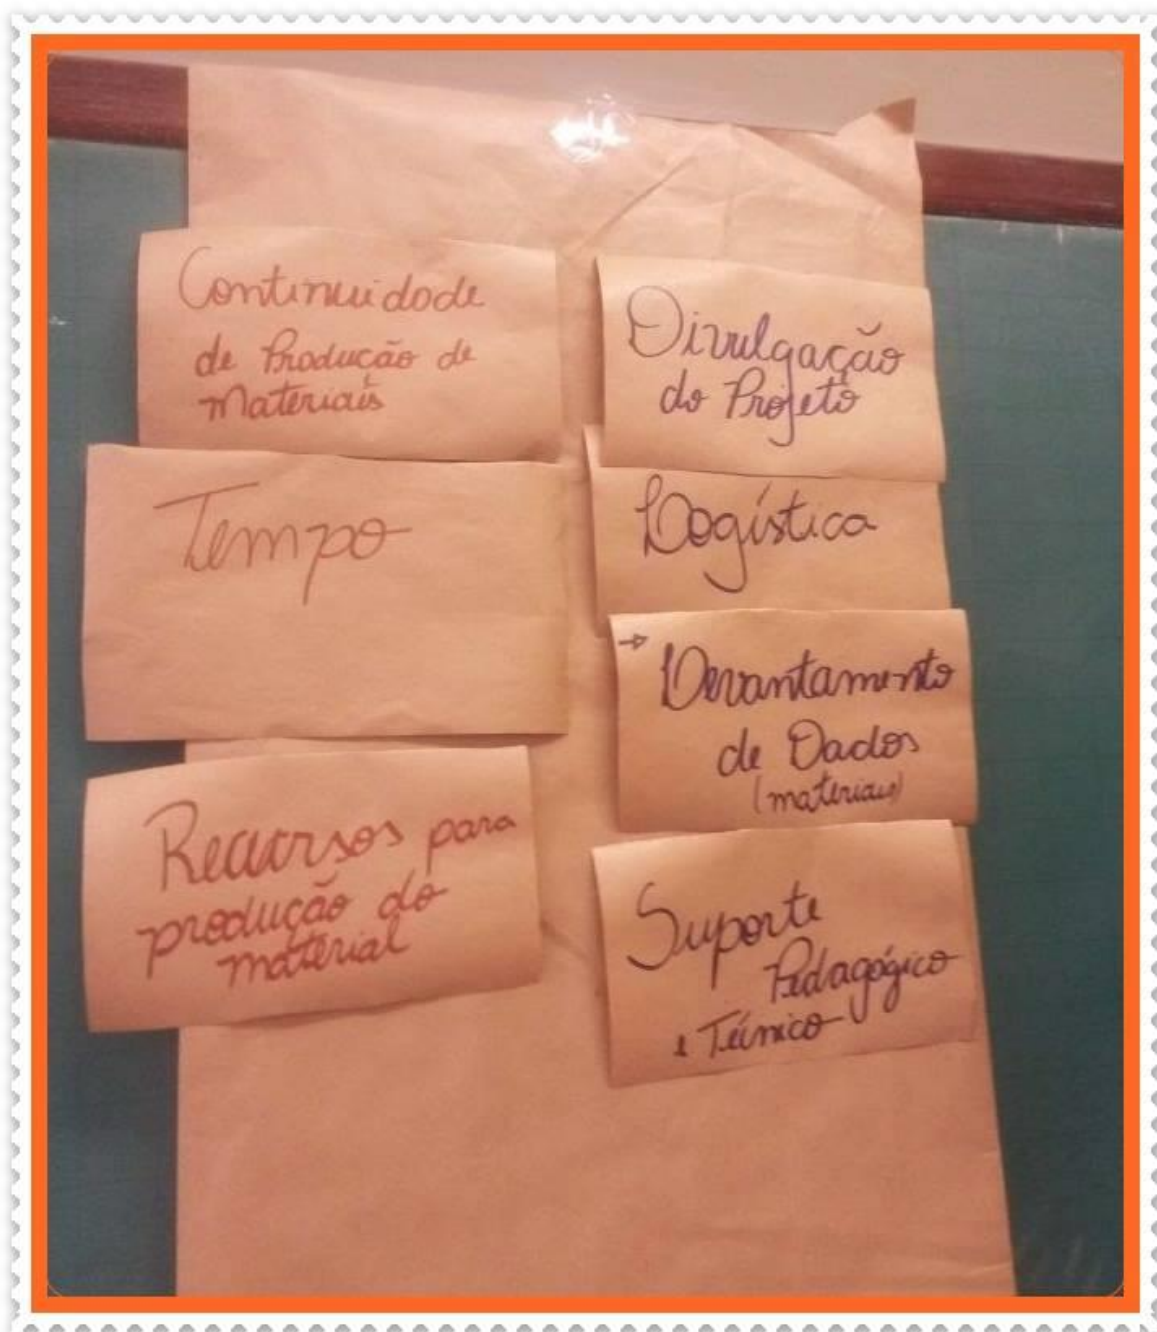 Continuidade
de Produção de
Materiais
Tempo
Recursos para
produção do
material
Divulgação
do Projeto
Logística
→ Levantamento
de Dados
(materiais)
Suporte
Pedagógico
e Técnico